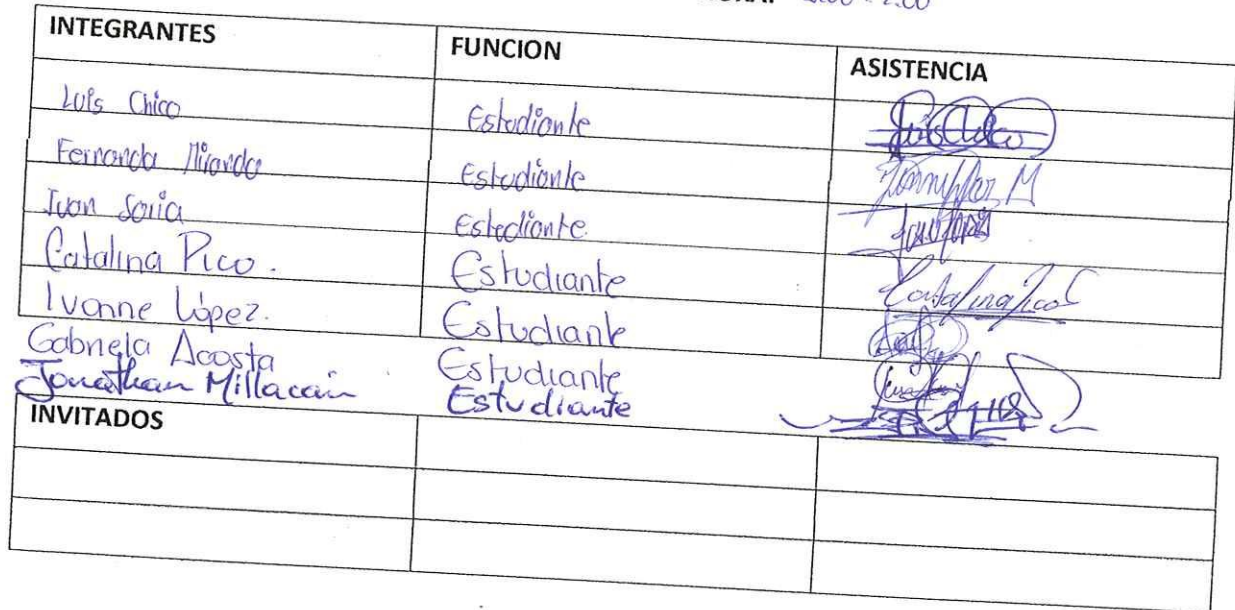 2:00
INTEGRANTES FUNCION ASISTENCIA
Luis Chico Estudiante
Fernanda Miranda Estudiante
Juan Soria Estudiante
Catalina Pico. Estudiante Catalina Pico
Ivonne López. Estudiante
Gabriela Acosta Estudiante
Jonathan Estudiante
INVITADOS